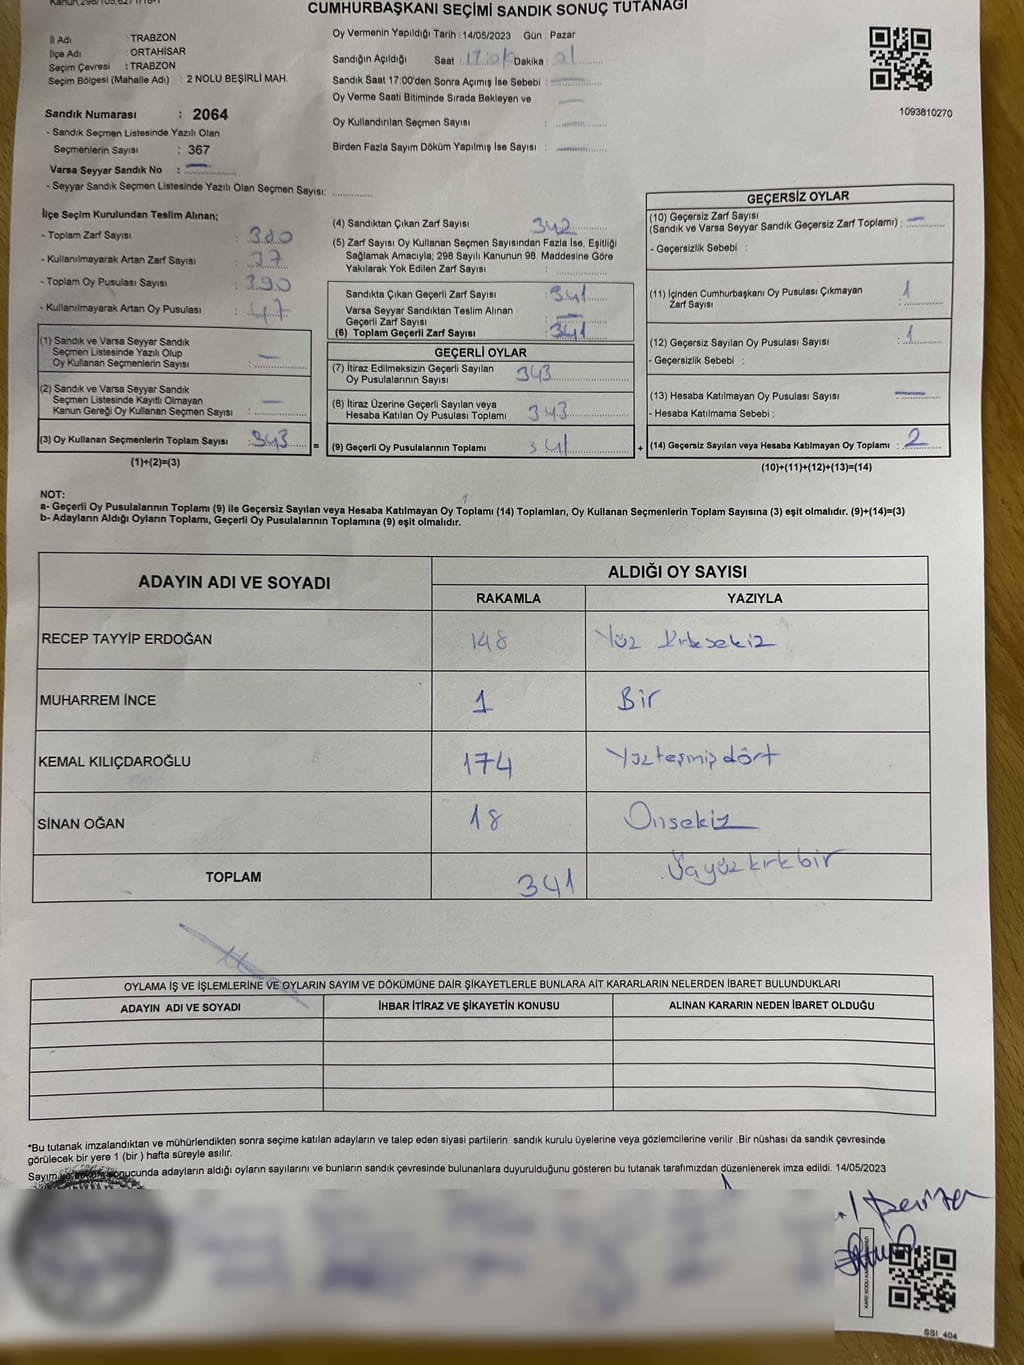 CUMHURBAŞKANI SEÇİMİ SANDIK SONUÇ TUTANAĞI
İl Adı : TRABZON
İlçe Adı : ORTAHİSAR
Seçim Çevresi : TRABZON
Seçim Bölgesi (Mahalle Adı) : 2 NOLU BEŞİRLİ MAH.
Sandık Numarası : 2064
- Sandık Seçmen Listesinde Yazılı Olan
Seçmenlerin Sayısı : 367
Varsa Seyyar Sandık No :
- Seyyar Sandık Seçmen Listesinde Yazılı Olan Seçmen Sayısı:
Oy Vermenin Yapıldığı Tarih : 14/05/2023 Gün : Pazar
Sandığın Açıldığı Saat : Dakika :
Sandık Saat 17:00'den Sonra Açımış İse Sebebi :
Oy Verme Saati Bitiminde Sırada Bekleyen ve
Oy Kullandırılan Seçmen Sayısı :
Birden Fazla Sayım Döküm Yapılmış İse Sayısı :
1093810270
İlçe Seçim Kurulundan Teslim Alınan;
- Toplam Zarf Sayısı : 380
- Kullanılmayarak Artan Zarf Sayısı : 37
- Toplam Oy Pusulası Sayısı : 390
- Kullanılmayarak Artan Oy Pusulası : 47
(1) Sandık ve Varsa Seyyar Sandık
Seçmen Listesinde Yazılı Olup
Oy Kullanan Seçmenlerin Sayısı : —
(2) Sandık ve Varsa Seyyar Sandık
Seçmen Listesinde Kayıtlı Olmayan
Kanun Gereği Oy Kullanan Seçmen Sayısı : —
(3) Oy Kullanan Seçmenlerin Toplam Sayısı : 343 =
(1)+(2)=(3)
(4) Sandıktan Çıkan Zarf Sayısı 342
(5) Zarf Sayısı Oy Kullanan Seçmen Sayısından Fazla İse, Eşitliği
Sağlamak Amacıyla; 298 Sayılı Kanunun 98. Maddesine Göre
Yakılarak Yok Edilen Zarf Sayısı :
Sandıkta Çıkan Geçerli Zarf Sayısı : 341
Varsa Seyyar Sandıktan Teslim Alınan
Geçerli Zarf Sayısı : —
(6) Toplam Geçerli Zarf Sayısı : 341
GEÇERLİ OYLAR
(7) İtiraz Edilmeksizin Geçerli Sayılan
Oy Pusulalarının Sayısı 343
(8) İtiraz Üzerine Geçerli Sayılan veya
Hesaba Katılan Oy Pusulası Toplamı 343
(9) Geçerli Oy Pusulalarının Toplamı 341 +
GEÇERSİZ OYLAR
(10) Geçersiz Zarf Sayısı
(Sandık ve Varsa Seyyar Sandık Geçersiz Zarf Toplamı) : —
- Geçersizlik Sebebi :
(11) İçinden Cumhurbaşkanı Oy Pusulası Çıkmayan
Zarf Sayısı : 1
(12) Geçersiz Sayılan Oy Pusulası Sayısı : 1
- Geçersizlik Sebebi :
(13) Hesaba Katılmayan Oy Pusulası Sayısı : —
- Hesaba Katılmama Sebebi :
(14) Geçersiz Sayılan veya Hesaba Katılmayan Oy Toplamı : 2
(10)+(11)+(12)+(13)=(14)
NOT:
a- Geçerli Oy Pusulalarının Toplamı (9) ile Geçersiz Sayılan veya Hesaba Katılmayan Oy Toplamı (14) Toplamları, Oy Kullanan Seçmenlerin Toplam Sayısına (3) eşit olmalıdır. (9)+(14)=(3)
b- Adayların Aldığı Oyların Toplamı, Geçerli Oy Pusulalarının Toplamına (9) eşit olmalıdır.
ADAYIN ADI VE SOYADI ALDIĞI OY SAYISI
RAKAMLA YAZIYLA
RECEP TAYYİP ERDOĞAN 148 Yüz kırksekiz
MUHARREM İNCE 1 Bir
KEMAL KILIÇDAROĞLU 174 Yüzteşmişdört
SİNAN OĞAN 18 Onsekiz
TOPLAM 341 Üçyüzkırkbir
OYLAMA İŞ VE İŞLEMLERİNE VE OYLARIN SAYIM VE DÖKÜMÜNE DAİR ŞİKAYETLERLE BUNLARA AİT KARARLARIN NELERDEN İBARET BULUNDUKLARI
ADAYIN ADI VE SOYADI İHBAR İTİRAZ VE ŞİKAYETİN KONUSU ALINAN KARARIN NEDEN İBARET OLDUĞU
*Bu tutanak imzalandıktan ve mühürlendikten sonra seçime katılan adayların ve talep eden siyasi partilerin sandık kurulu üyelerine veya gözlemcilerine verilir .Bir nüshası da sandık çevresinde
görülecek bir yere 1 (bir ) hafta süreyle asılır.
Sayım sonucunda adayların aldığı oyların sayılarını ve bunların sandık çevresinde bulunanlara duyurulduğunu gösteren bu tutanak tarafımızdan düzenlenerek imza edildi. 14/05/2023
SSI_404